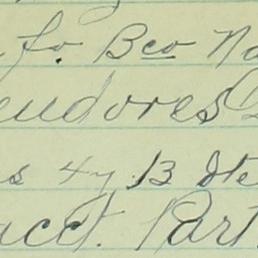 fo. Bco Na
eudores
s 4 y 13 de
acct. Part